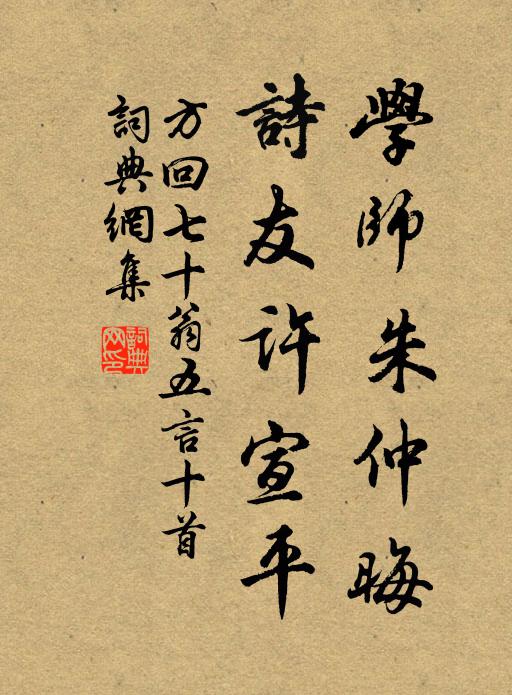 學師朱仲晦
詩友許宣平
方回七十翁五言十首
詞典網集
詞典网印